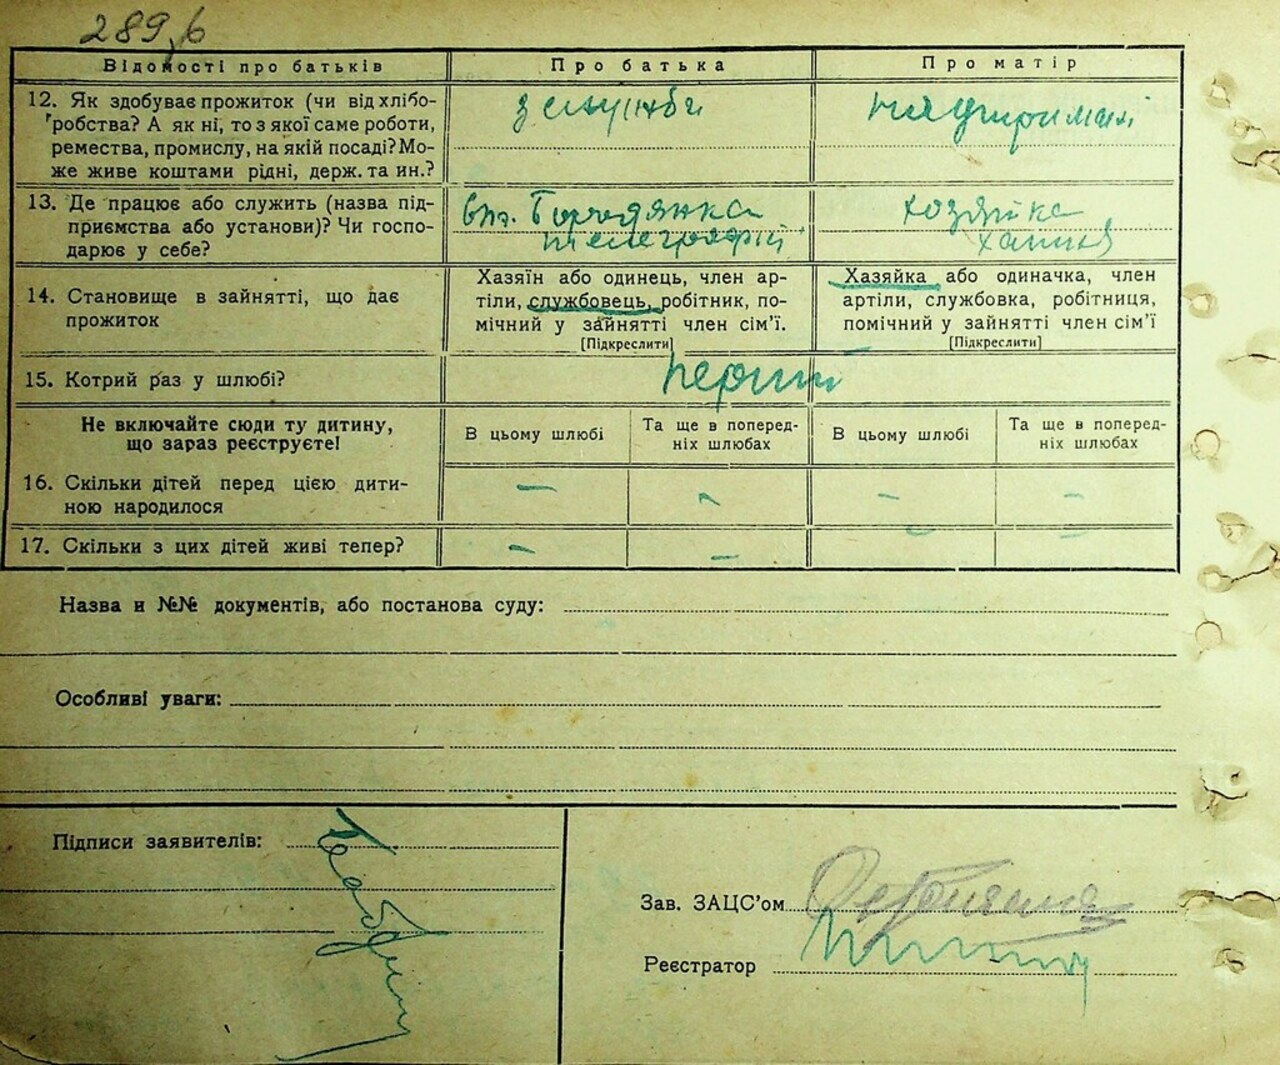 289,б
Відомості про батьків
Про батька
Про матір
12. Як здобуває прожиток (чи від хлібо-
робства? А як ні, то з якої саме роботи,
ремества, промислу, на якій посаді? Мо-
же живе коштами рідні, держ. та ин.?
з служби
13. Де працює або служить (назва під-
приємства або установи)? Чи госпо-
дарює у себе?
ст. Бородянка
телеграфіст
хозяйка
14. Становище в зайнятті, що дає
прожиток
Хазяїн або одинець, член ар-
тіли, службовець, робітник, по-
мічний у зайнятті член сім'ї.
[Підкреслити]
Хазяйка або одиначка, член
артіли, службовка, робітниця,
помічний у зайнятті член сім'ї
[Підкреслити]
15. Котрий раз у шлюбі?
перший
Не включайте сюди ту дитину,
що зараз реєструєте!
В цьому шлюбі
Та ще в поперед-
ніх шлюбах
В цьому шлюбі
Та ще в поперед-
ніх шлюбах
16. Скільки дітей перед цією дити-
ною народилося
– – – –
17. Скільки з цих дітей живі тепер?
– – – –
Назва и №№ документів, або постанова суду:
Особливі уваги:
Підписи заявителів:
Зав. ЗАЦС'ом
Реєстратор